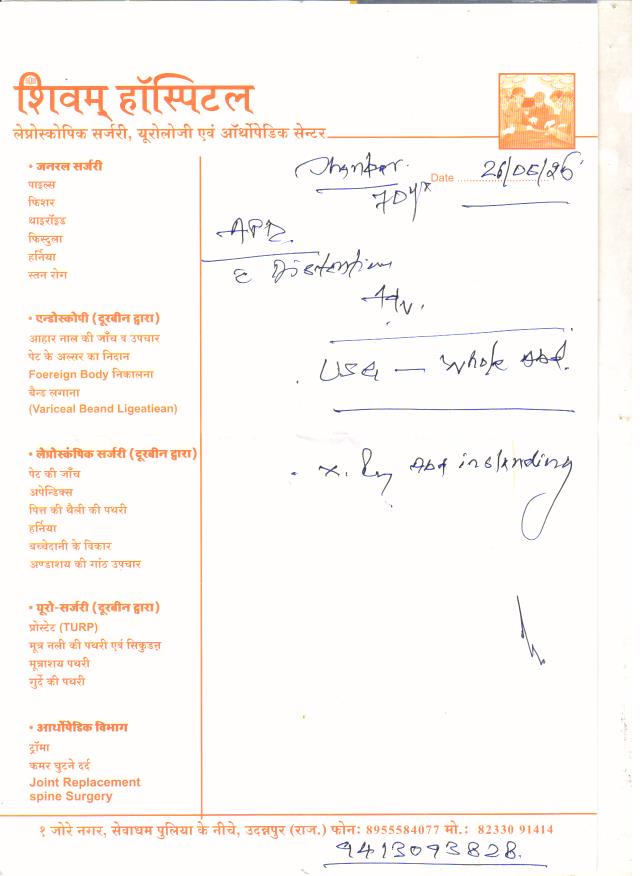 शिवम् हॉस्पिटल
लेप्रोस्कोपिक सर्जरी, यूरोलोजी एवं ऑर्थोपेडिक सेन्टर
Date 26/05/25
70yr
• जनरल सर्जरी
पाइल्स
फिशर
थाइरॉइड
फिस्टुला
हर्निया
स्तन रोग
APD
c Distention
Adv.
USG — Whole Abd.
• X. Ray Abd in standing
• एन्डोस्कोपी (दूरबीन द्वारा)
आहार नाल की जाँच व उपचार
पेट के अल्सर का निदान
Foereign Body निकालना
बैन्ड लगाना
(Variceal Beand Ligeatiean)
• लेप्रोस्कंपिक सर्जरी (दूरबीन द्वारा)
पेट की जाँच
अपेन्डिक्स
पित्त की थैली की पथरी
हर्निया
बच्चेदानी के विकार
अण्डाशय की गांठ उपचार
• यूरो-सर्जरी (दूरबीन द्वारा)
प्रोस्टेट (TURP)
मूत्र नली की पथरी एवं सिकुडऩ
मूत्राशय पथरी
गुर्दे की पथरी
• आर्थोपेडिक विभाग
ट्रॉमा
कमर घुटने दर्द
Joint Replacement
spine Surgery
१ जोरे नगर, सेवाधम पुलिया के नीचे, उदन्नपुर (राज.) फोन: 8955584077 मो.: 82330 91414
9413093828.